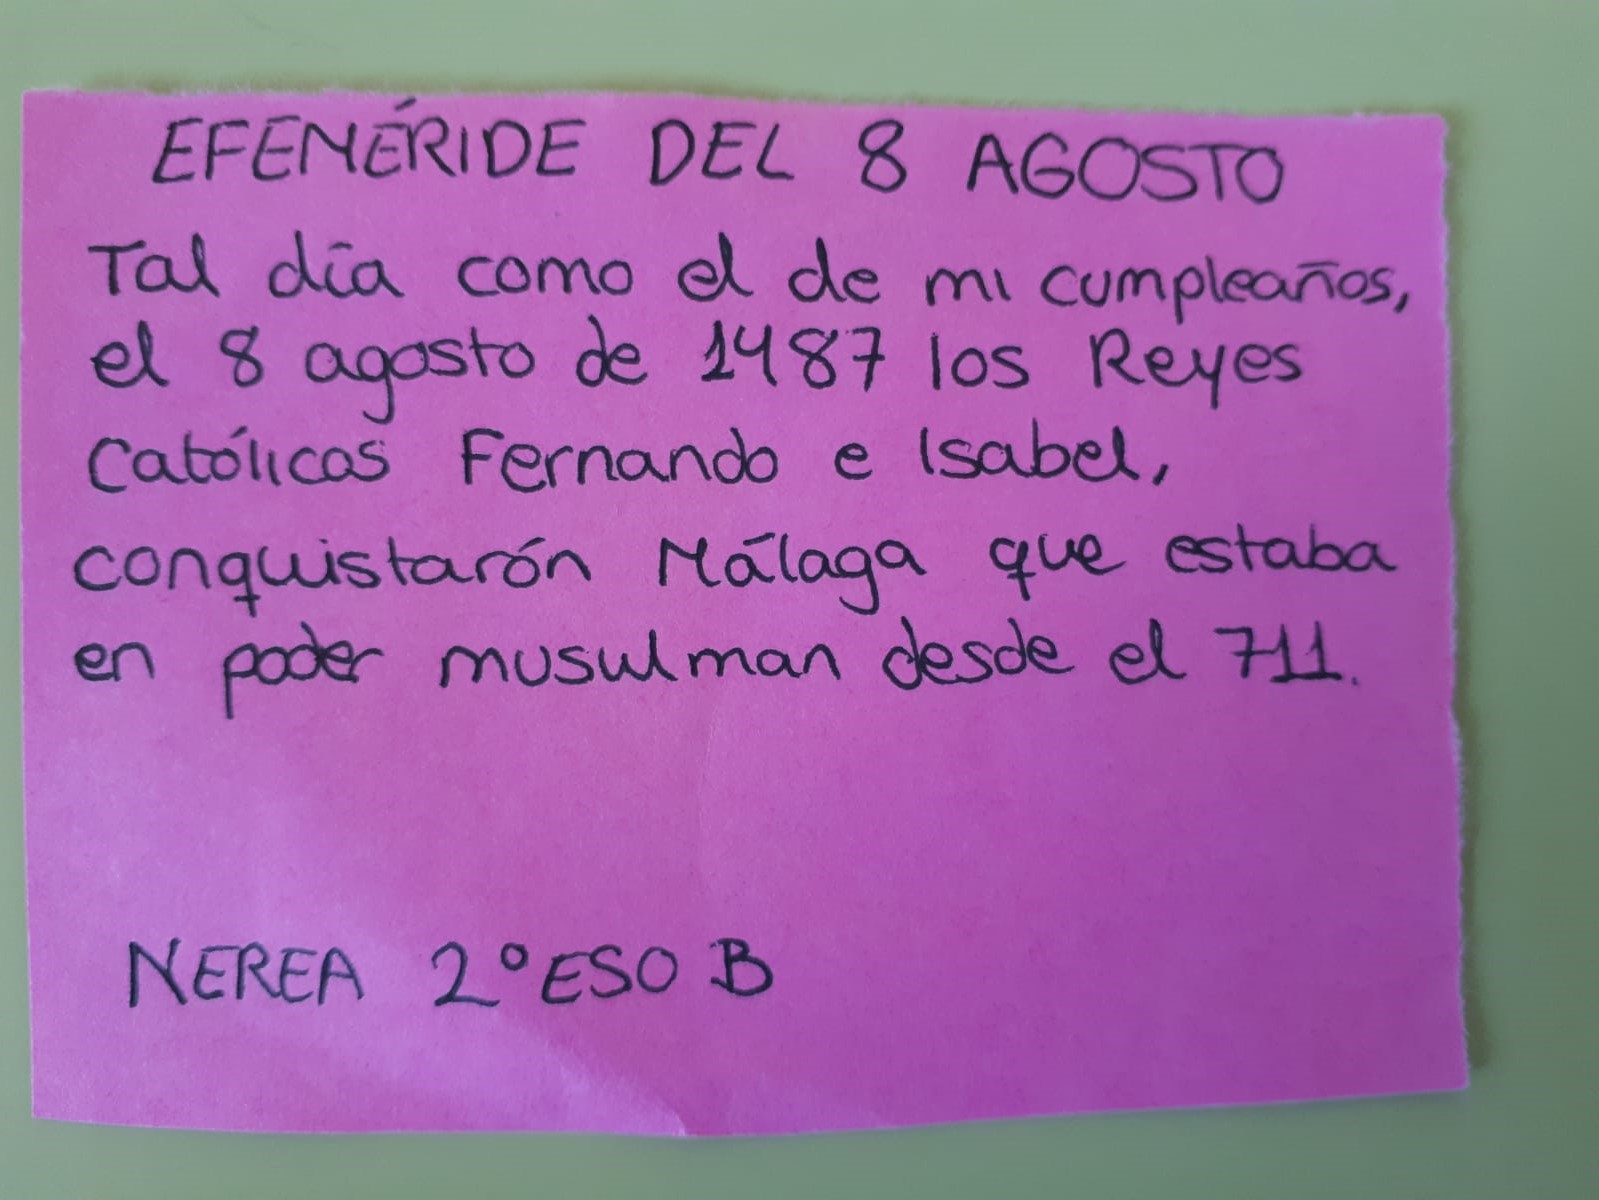 EFEMÉRIDE DEL 8 AGOSTO
Tal día como el de mi cumpleaños,
el 8 agosto de 1487 los Reyes
Católicos Fernando e Isabel,
conquistarón Málaga que estaba
en poder musulman desde el 711.
NEREA 2º ESO B